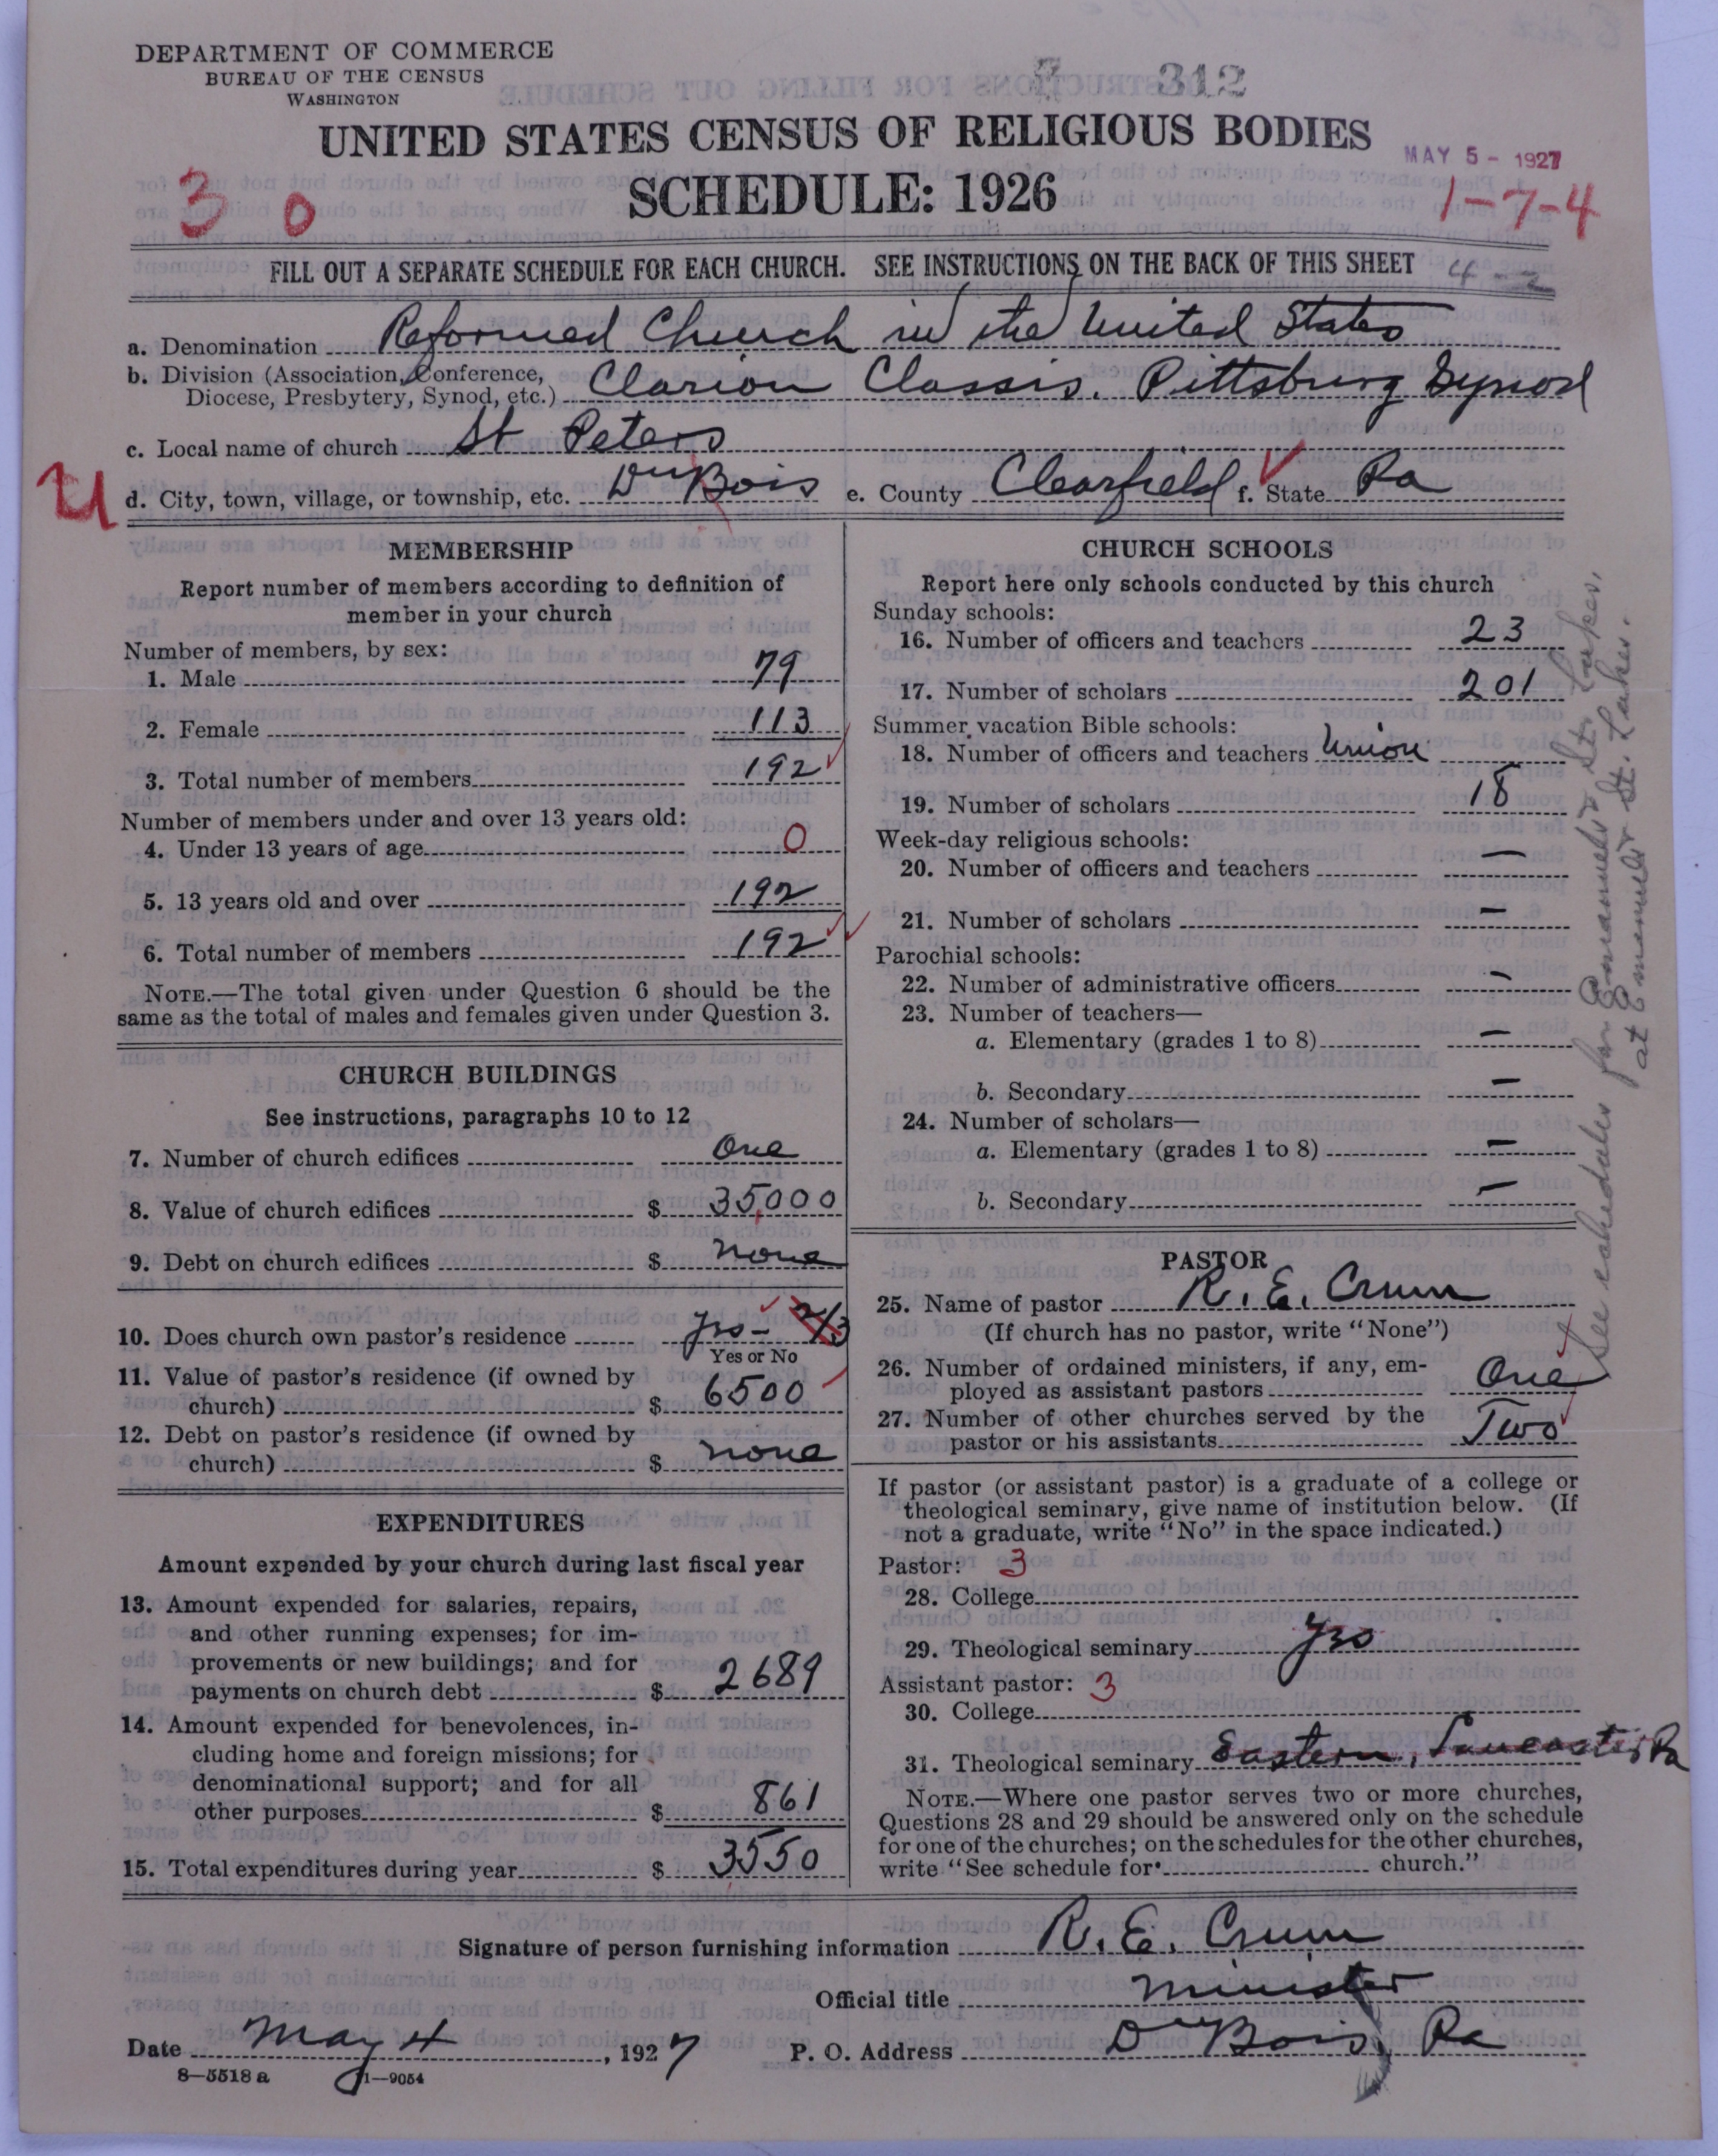 DEPARTMENT OF COMMERCE
BUREAU OF THE CENSUS
WASHINGTON
312
UNITED STATES CENSUS OF RELIGIOUS BODIES
MAY 5 - 1927
SCHEDULE: 1926
3 0
1-7-4
FILL OUT A SEPARATE SCHEDULE FOR EACH CHURCH. SEE INSTRUCTIONS ON THE BACK OF THIS SHEET
4-2
a. Denomination Reformed Church in the United States
b. Division (Association, Conference, Diocese, Presbytery, Synod, etc.) Clarion Classis. Pittsburg Synod
c. Local name of church St Peters
U
d. City, town, village, or township, etc. Du Bois e. County Clearfield f. State Pa
MEMBERSHIP
Report number of members according to definition of
member in your church
Number of members, by sex:
1. Male 79
2. Female 113
3. Total number of members 192
Number of members under and over 13 years old:
4. Under 13 years of age 0
5. 13 years old and over 192
6. Total number of members 192
NOTE.—The total given under Question 6 should be the
same as the total of males and females given under Question 3.
CHURCH BUILDINGS
See instructions, paragraphs 10 to 12
7. Number of church edifices One
8. Value of church edifices $ 35,000
9. Debt on church edifices $ none
10. Does church own pastor's residence yes - 2/3
Yes or No
11. Value of pastor's residence (if owned by
church) $ 6500
12. Debt on pastor's residence (if owned by
church) $ none
EXPENDITURES
Amount expended by your church during last fiscal year
13. Amount expended for salaries, repairs,
and other running expenses; for im-
provements or new buildings; and for
payments on church debt $ 2689
14. Amount expended for benevolences, in-
cluding home and foreign missions; for
denominational support; and for all
other purposes $ 861
15. Total expenditures during year $ 3550
CHURCH SCHOOLS
Report here only schools conducted by this church
Sunday schools:
16. Number of officers and teachers 23
17. Number of scholars 201
Summer vacation Bible schools:
18. Number of officers and teachers Union
19. Number of scholars 18
Week-day religious schools:
20. Number of officers and teachers —
21. Number of scholars —
Parochial schools:
22. Number of administrative officers —
23. Number of teachers—
a. Elementary (grades 1 to 8) —
b. Secondary —
24. Number of scholars—
a. Elementary (grades 1 to 8) —
b. Secondary —
PASTOR
25. Name of pastor R. E. Crum
(If church has no pastor, write "None")
26. Number of ordained ministers, if any, em-
ployed as assistant pastors One
27. Number of other churches served by the
pastor or his assistants Two
If pastor (or assistant pastor) is a graduate of a college or
theological seminary, give name of institution below. (If
not a graduate, write "No" in the space indicated.)
Pastor: 3
28. College
29. Theological seminary yes
Assistant pastor: 3
30. College
31. Theological seminary Eastern, Lancaster Pa
NOTE.—Where one pastor serves two or more churches,
Questions 28 and 29 should be answered only on the schedule
for one of the churches; on the schedules for the other churches,
write "See schedule for church."
See schedules for Emanuel & St. Lukes,
at Emanuel & St. Lukes.
Signature of person furnishing information R. E. Crum
Official title Minister
Date May 4, 1927 P. O. Address Du Bois, Pa
8—5518 a 11—9054